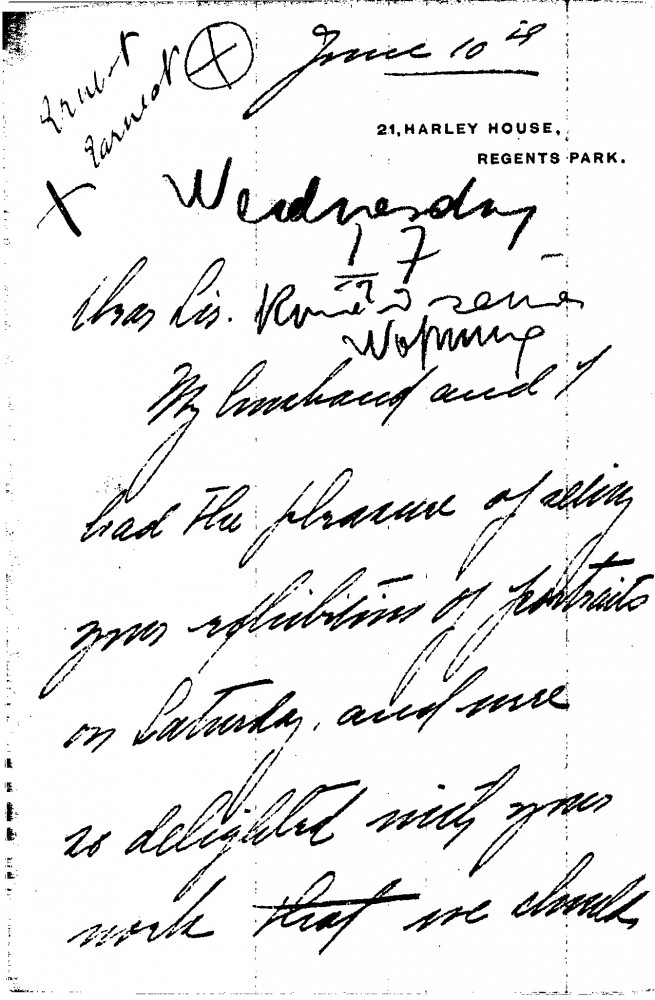 June 10th
Ernest
Earnest
21, HARLEY HOUSE,
REGENTS PARK.
Wednesday
17
Dear Sir.
My husband and I
had the pleasure of seeing
your exhibition of portraits
on Saturday, and were
so delighted with your
work that we should